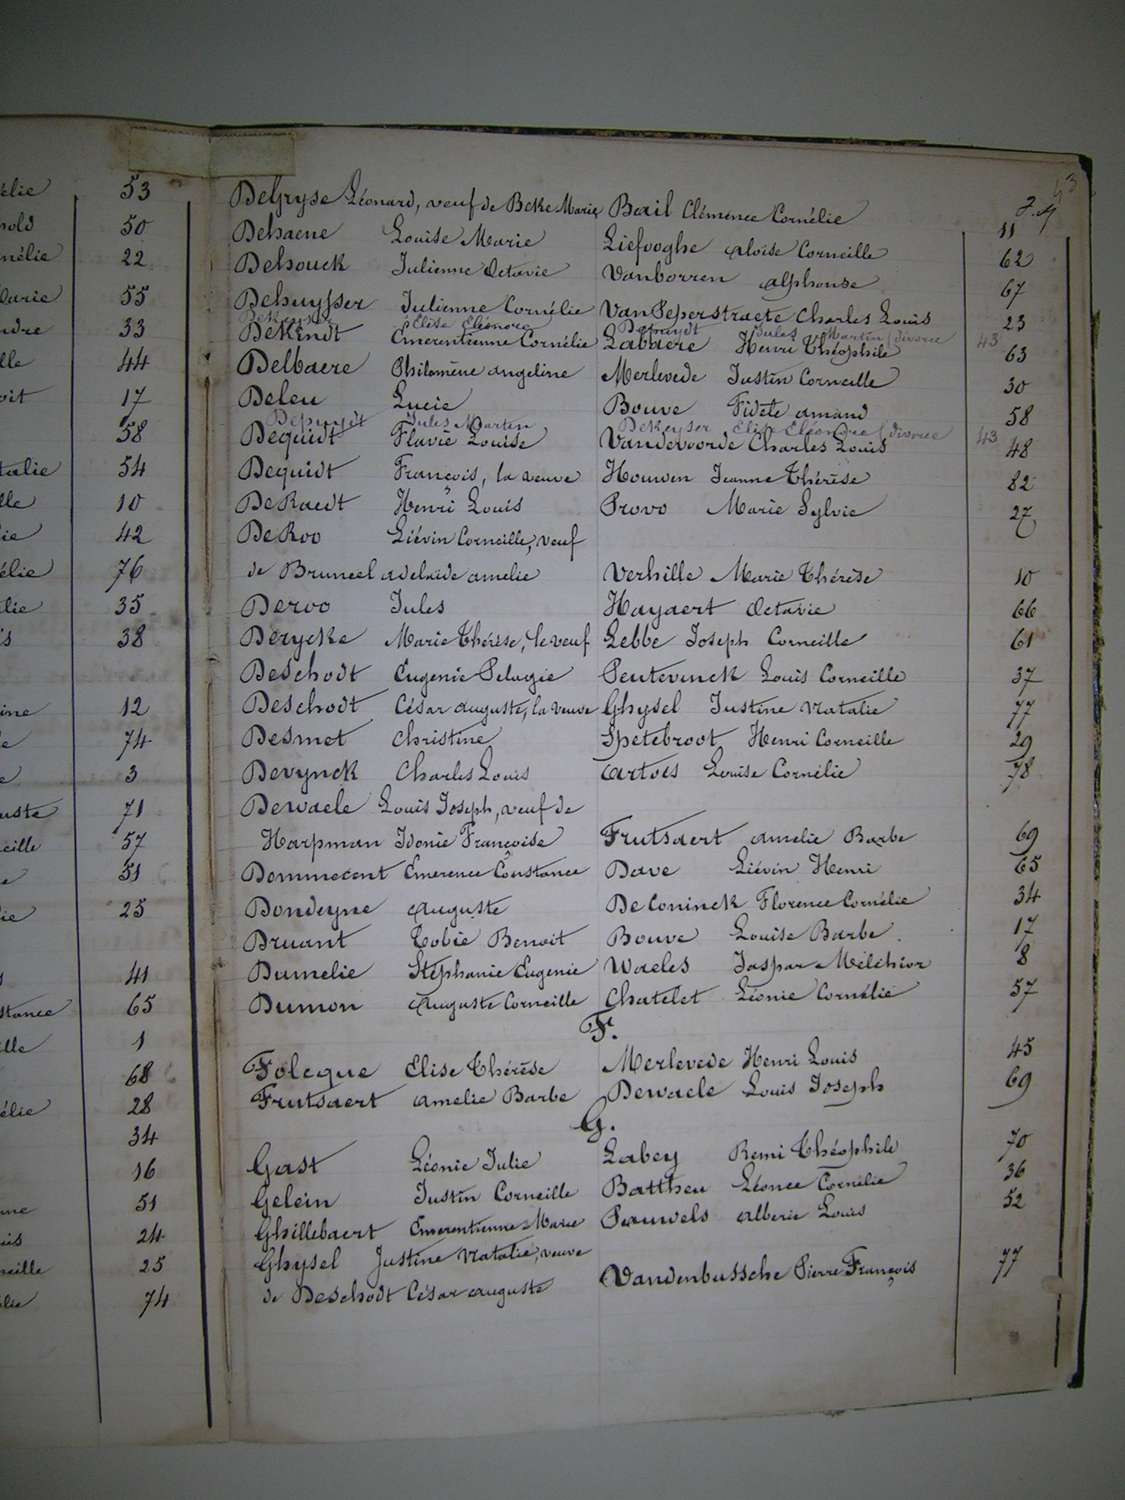 élie 53
nold 50
nélie 22
Marie 55
ndre 33
lle 44
oit 17
58
talie 54
lle 10
ie 42
élie 76
lie 35
is 38
ine 12
e 74
e 3
uste 71
eille 57
e 51
ie 25
s 41
stance 65
ille 1
68
élie 28
34
16
nne 51
uis 24
neille 25
élie 74
DeGryse Léonard, veuf de Beke Marie Bail Clémence Cornélie 11
Dehaene Louise Marie Liefooghe Aloïse Corneille 62
Dehouck Julienne Octavie Vanborren Alphonse 67
Dehuysser Julienne Cornélie VanPeperstraete Charles Louis 23
DeKeyser Elise Eléonore Depuydt Jules Martin (divorce 43
DeKindt Emerentienne Cornélie Labaere Henri Théophile 63
Delbaere Philomène Angeline Merlevede Justin Corneille 30
Deleu Lucie Bouve Fidèle Amand 58
Depuydt Jules Martin DeKeyser Elise Eléonore (divorce 43
Dequidt Flavie Louise Vandevoorde Charles Louis 48
Dequidt François, la veuve Houwen Jeanne Thérèse 82
DeRaedt Henri Louis Provo Marie Sylvie 27
DeRoo Liévin Corneille, veuf
de Bruneel Adelaïde Amelie Verhille Marie Thérèse 10
Deroo Jules Hayaert Octavie 66
Derycke Marie Thérèse, le veuf Lebbe Joseph Corneille 61
Deschodt Eugenie Pelagie Peutevinck Louis Corneille 37
Deschodt César Auguste, la veuve Ghysel Justine Natalie 77
Desmet Christine Spetebroot Henri Corneille 29
Devynck Charles Louis Cartois Louise Cornélie 78
Dewaele Louis Joseph, veuf de
Harpman Idonie Françoise Frutsaert Amelie Barbe 69
Dommecent Emerence Constance Dave Liévin Henri 65
Dondeyne Auguste DeConinck Florence Cornélie 34
Druant Tobie Benoit Bouve Louise Barbe 17
Dumelie Stéphanie Eugenie Waeles Jaspar-Melchior 8
Dumon Auguste Corneille Chatelet Léonie Cornélie 57
F.
Foleque Elise Thérèse Merlevede Henri Louis 45
Frutsaert Amelie Barbe Dewaele Louis Joseph 69
G.
Gast Léonie Julie Labey Remi Théophile 70
Gelein Justin Corneille Battheu Léonce Cornélie 36
Ghillebaert Emerentienne-Marie Pauwels Alberic Louis 52
Ghysel Justine Natalie, veuve
de Deschodt César Auguste Vandenbussche Pierre François 77